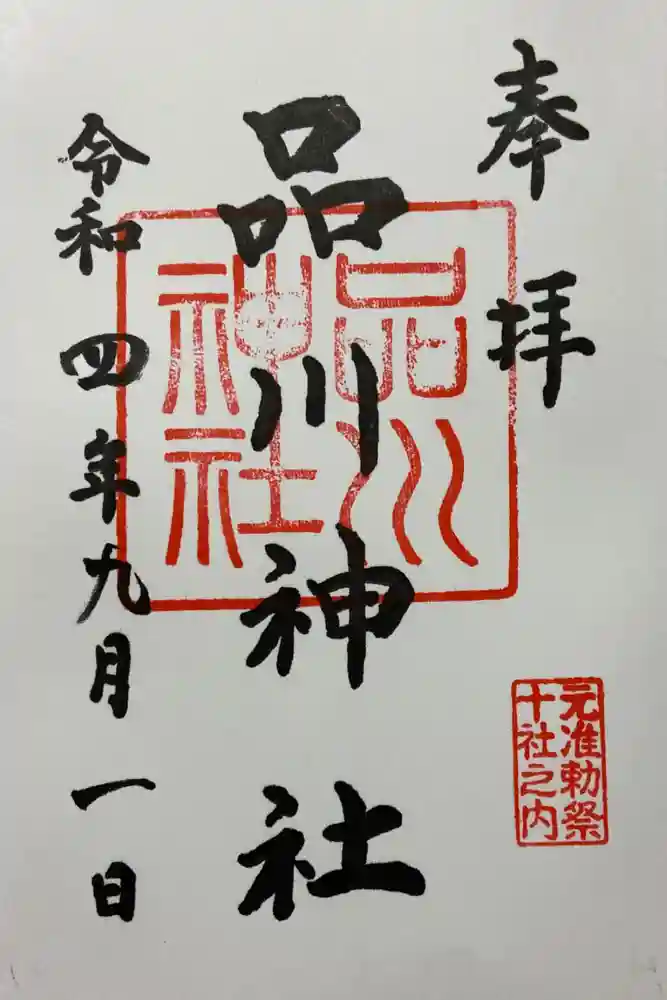 奉拝
品川神社
品川
神社
元准勅祭
十社之内
令和四年九月一日